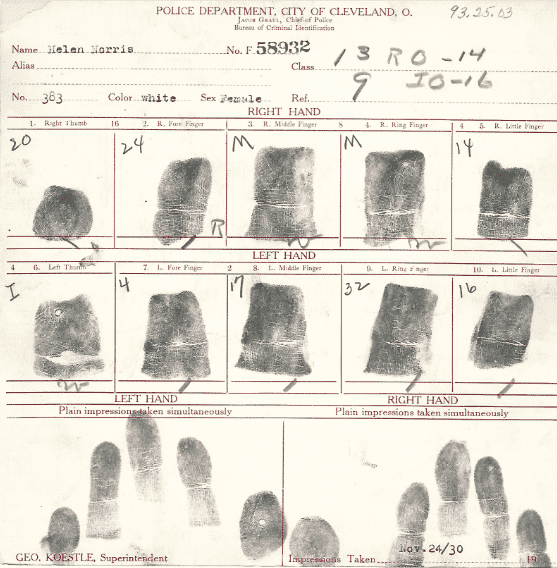 POLICE DEPARTMENT, CITY OF CLEVELAND, O.
93.25.03
JACOB GRAUL, Chief of Police
Bureau of Criminal Identification
Name Helen Norris No. F 58932
Alias Class 13 R O -14
9 IO-16
No. 383 Color white Sex Female Ref.
RIGHT HAND
1. Right Thumb 16 2. R. Fore Finger 3. R. Middle Finger 8 4. R. Ring Finger 4 5. R. Little Finger
20 24 M M 14
R
LEFT HAND
4 6. Left Thumb 7. L. Fore Finger 2 8. L. Middle Finger 9. L. Ring Finger 10. L. Little Finger
I 4 17 32 16
LEFT HAND RIGHT HAND
Plain impressions taken simultaneously Plain impressions taken simultaneously
GEO. KOESTLE, Superintendent Impressions Taken Nov.24/30 19